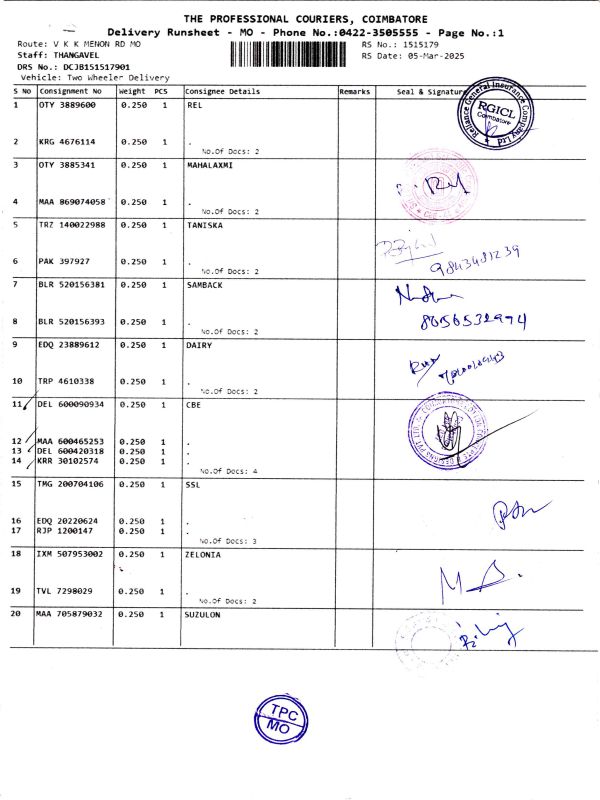 THE PROFESSIONAL COURIERS, COIMBATORE
Delivery Runsheet - MO - Phone No.:0422-3505555 - Page No.:1
Route: V K K MENON RD MO
RS No.: 1515179
Staff: THANGAVEL
RS Date: 05-Mar-2025
DRS No.: DCJB151517901
Vehicle: Two Wheeler Delivery
S No Consignment No Weight PCS Consignee Details Remarks Seal & Signature
1 OTY 3889600 0.250 1 REL
Reliance General Insurance Company
RGICL
Coimbatore
2 KRG 4676114 0.250 1 .
No.Of Docs: 2
3 OTY 3885341 0.250 1 MAHALAXMI
4 MAA 869074058 0.250 1 .
No.Of Docs: 2
5 TRZ 140022988 0.250 1 TANISKA
6 PAK 397927 0.250 1 .
9843481239
No.Of Docs: 2
7 BLR 520156381 0.250 1 SAMBACK
8 BLR 520156393 0.250 1 .
8056532974
No.Of Docs: 2
9 EDQ 23889612 0.250 1 DAIRY
10 TRP 4610338 0.250 1 .
No.Of Docs: 2
11 DEL 600090934 0.250 1 CBE
12 MAA 600465253 0.250 1 .
13 DEL 600420318 0.250 1 .
14 KRR 30102574 0.250 1 .
No.Of Docs: 4
15 TMG 200704106 0.250 1 SSL
16 EDQ 20220624 0.250 1 .
17 RJP 1200147 0.250 1 .
No.Of Docs: 3
18 IXM 507953002 0.250 1 ZELONIA
19 TVL 7298029 0.250 1 .
No.Of Docs: 2
20 MAA 705879032 0.250 1 SUZULON
TPC
MO